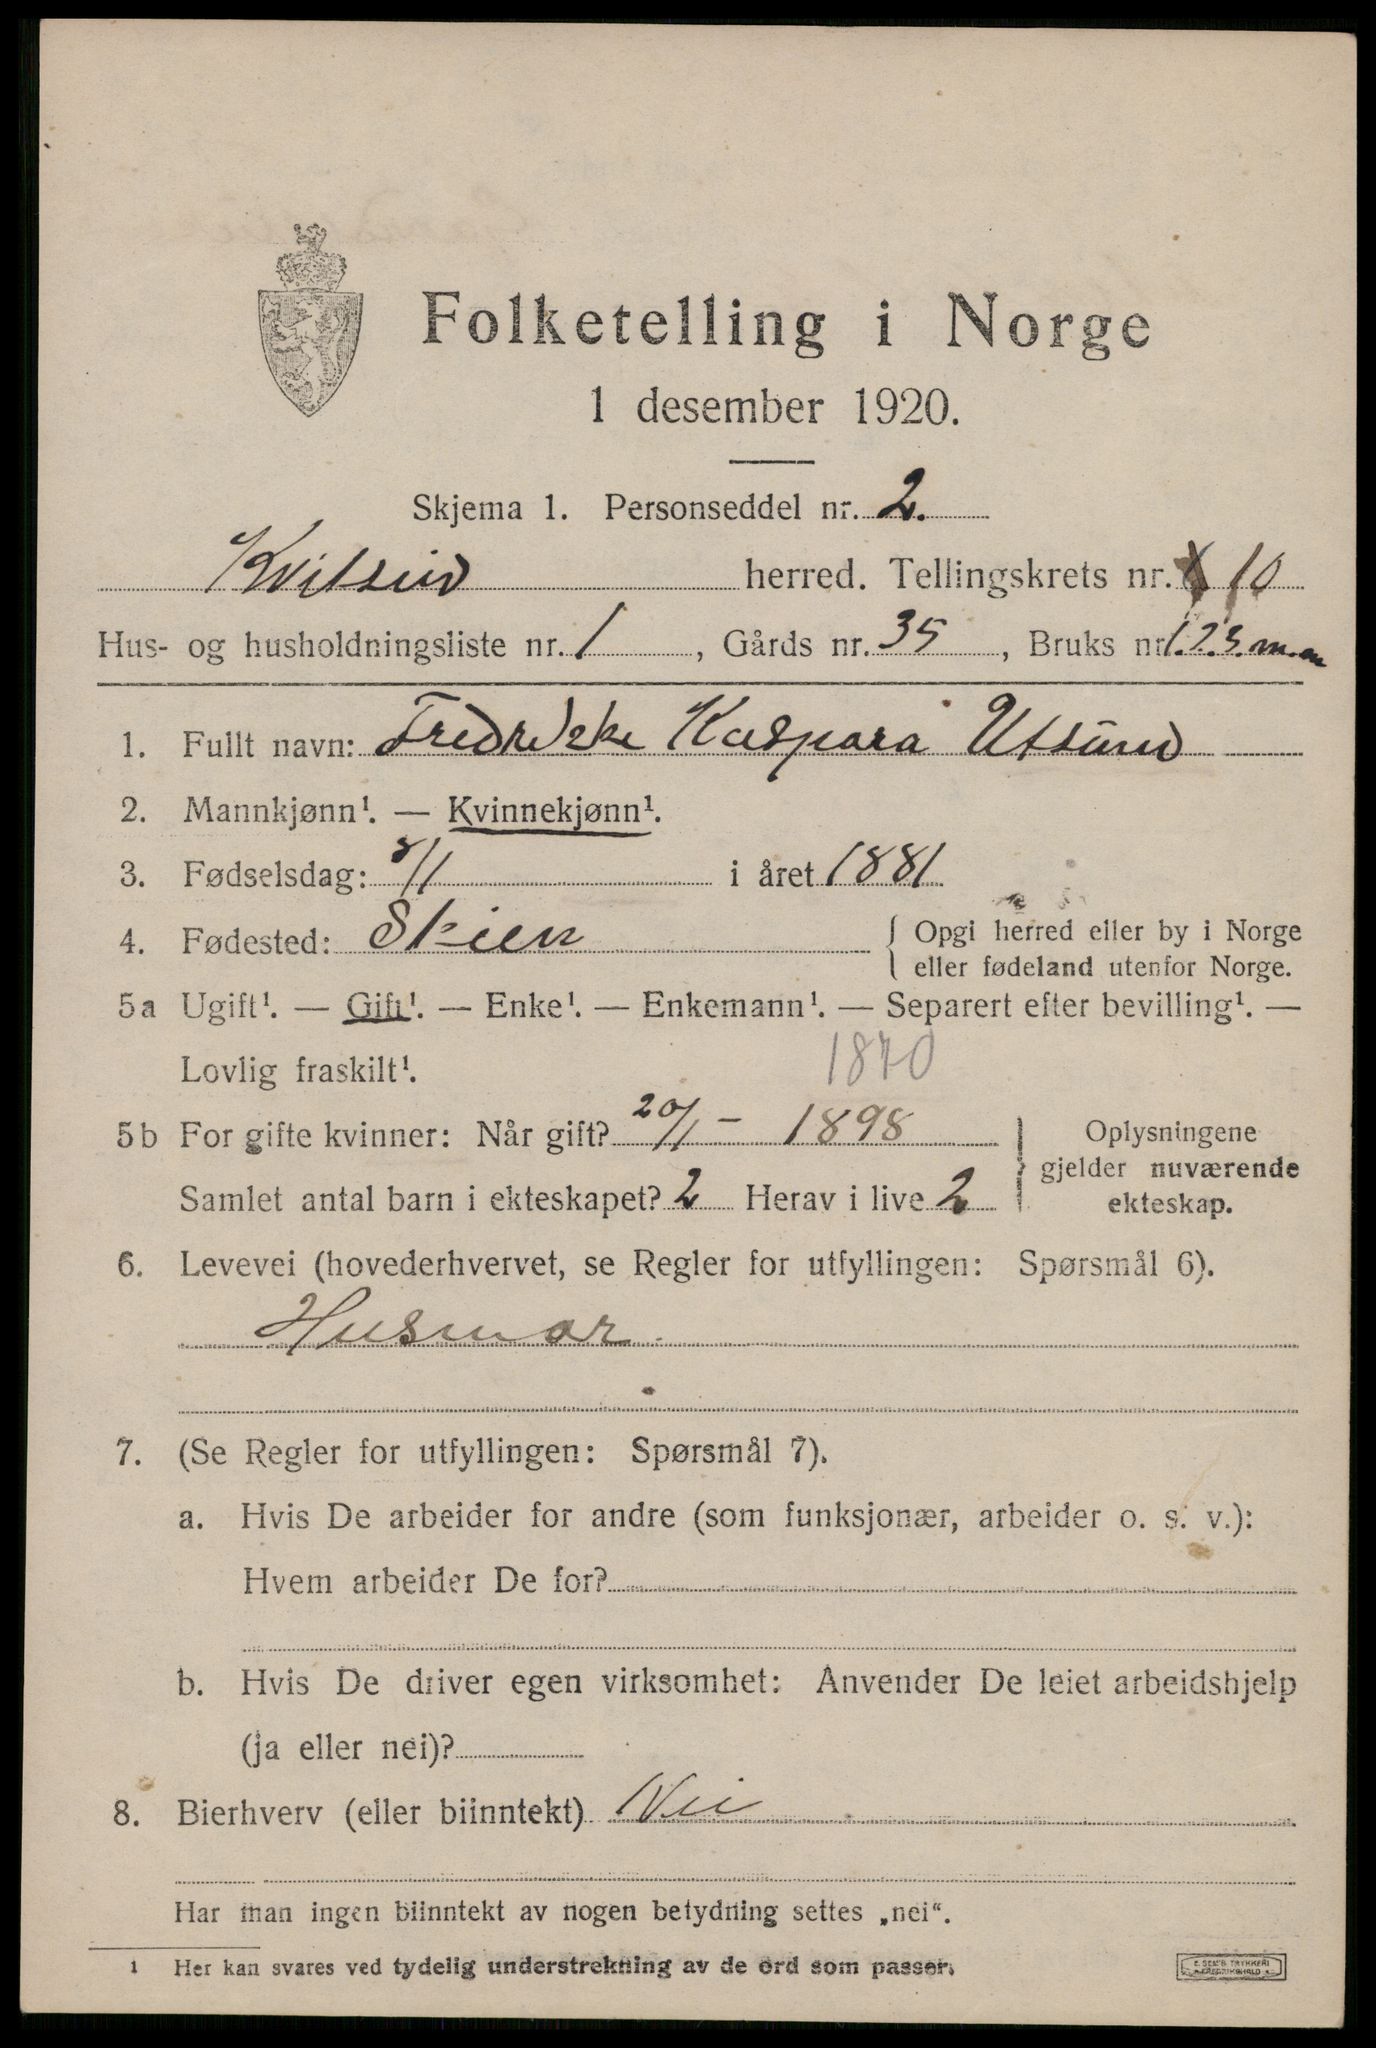 Folketelling i Norge
1 desember 1920.
Skjema 1. Personseddel nr. 2.
Kvitseid herred. Tellingskrets nr. 10
Hus- og husholdningsliste nr. 1, Gårds nr. 35, Bruks nr. 1.2.3. m.m
1. Fullt navn: Fredrikke Kaspara Utsund
2. Mannkjønn¹. — Kvinnekjønn¹.
3. Fødselsdag: 8/1 i året 1881
4. Fødested: Skien { Opgi herred eller by i Norge
eller fødeland utenfor Norge.
5a Ugift¹. — Gift¹. — Enke¹. — Enkemann¹. — Separert efter bevilling¹. —
Lovlig fraskilt¹. 1870
5b For gifte kvinner: Når gift? 20/1 - 1898 } Oplysningene
gjelder nuværende
Samlet antal barn i ekteskapet? 2 Herav i live 2 ekteskap.
6. Levevei (hovederhvervet, se Regler for utfyllingen: Spørsmål 6).
Husmor.
7. (Se Regler for utfyllingen: Spørsmål 7).
a. Hvis De arbeider for andre (som funksjonær, arbeider o. s. v.):
Hvem arbeider De for?
b. Hvis De driver egen virksomhet: Anvender De leiet arbeidshjelp
(ja eller nei)?
8. Bierhverv (eller biinntekt) Nei
Har man ingen biinntekt av nogen betydning settes „nei“.
¹ Her kan svares ved tydelig understrekning av de ord som passer.
E. SEM'S TRYKKERI
FREDRIKSHALD